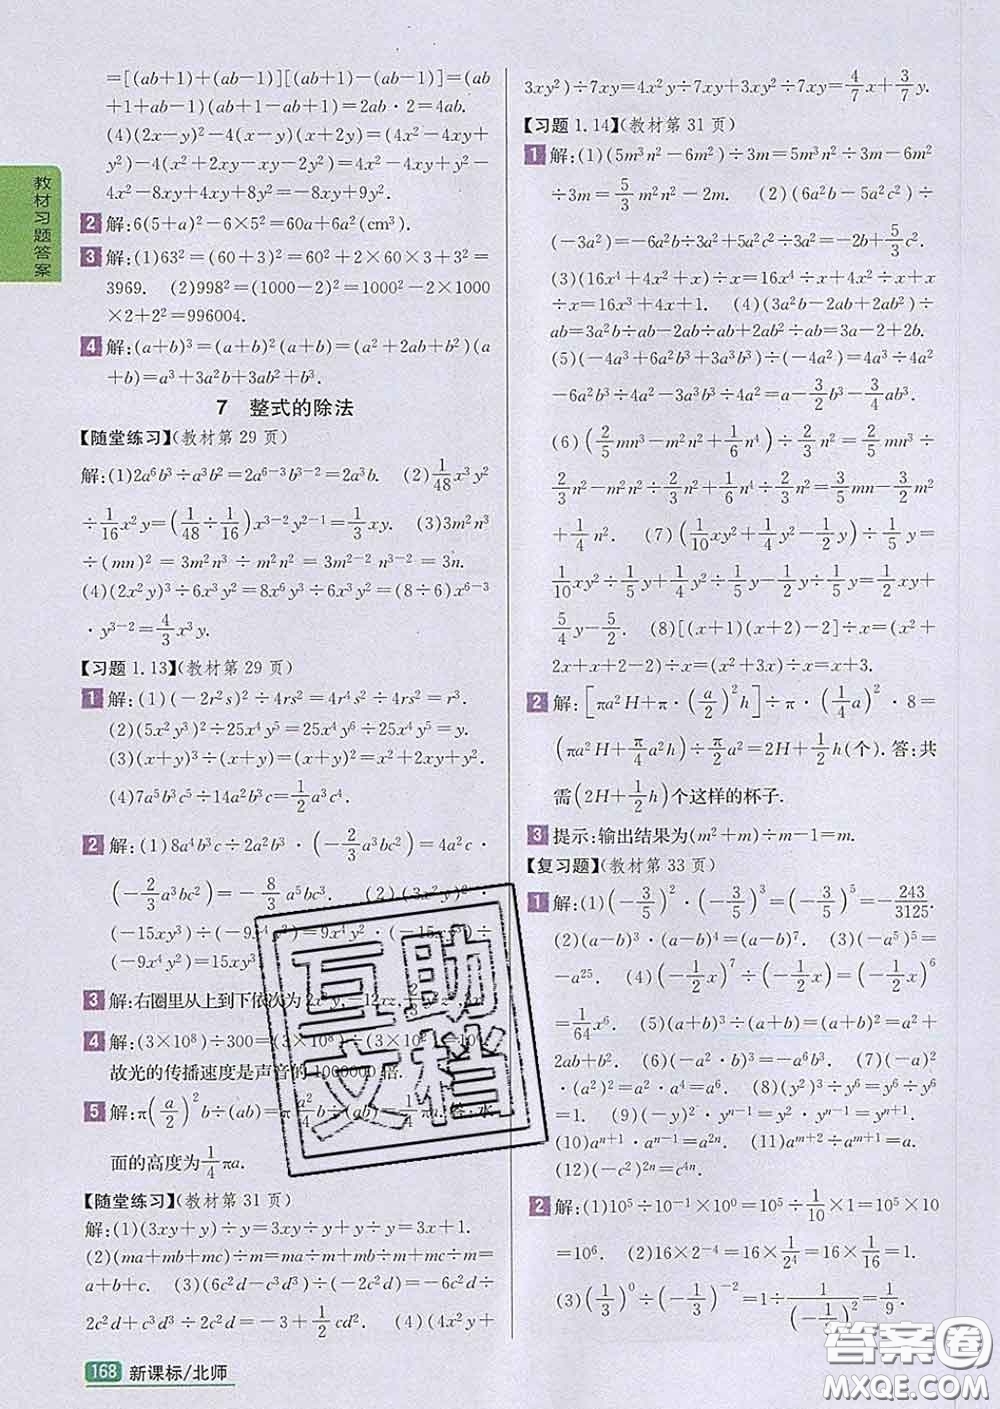 教材习题答案
=[(ab+1)+(ab-1)][(ab+1)-(ab-1)]=(ab
+1+ab-1)(ab+1-ab+1)=2ab·2=4ab.
(4)(2x-y)²-4(x-y)(x+2y)=(4x²-4xy+
y²)-4(x²+2xy-xy-2y²)=4x²-4xy+y²-
4x²-8xy+4xy+8y²=-8xy+9y².
2 解:6(5+a)²-6×5²=60a+6a²(cm³).
3 解:(1)63²=(60+3)²=60²+2×60×3+3²=
3969. (2)998²=(1000-2)²=1000²-2×1000
×2+2²=996004.
4 解:(a+b)³=(a+b)²(a+b)=(a²+2ab+b²)(a
+b)=a³+3a²b+3ab²+b³.
7 整式的除法
【随堂练习】(教材第29页)
解:(1)2a⁶b³÷a³b²=2a⁶⁻³b³⁻²=2a³b. (2)1/48x³y²
÷1/16x²y=(1/48÷1/16)x³⁻²y²⁻¹=1/3xy. (3)3m²n³
÷(mn)²=3m²n³÷m²n²=3m²⁻²n³⁻²=3n.
(4)(2x²y)³÷6x³y²=8x⁶y³÷6x³y²=(8÷6)x⁶⁻³
·y³⁻²=4/3x³y.
【习题1.13】(教材第29页)
1 解:(1)(-2r²s)²÷4rs²=4r⁴s²÷4rs²=r³.
(2)(5x²y³)²÷25x⁴y⁵=25x⁴y⁶÷25x⁴y⁵=y.
(3)(x+y)³÷(x+y)=(x+y)²=x²+2xy+y².
(4)7a⁵b³c⁵÷14a²b³c=1/2a³c⁴.
2 解:(1)8a⁴b³c÷2a²b³·(-2/3a³bc²)=4a²c·
(-2/3a³bc²)=-8/3a⁵bc³. (2)(3x²y)²·
(-15xy³)÷(-9x⁴y²)=9x⁴y²·(-15xy³)÷
(-9x⁴y²)=15xy³.
3 解:右圈里从上到下依次为
4 解:(3×10⁸)÷300=(3×10⁸)÷(3×10²)=10⁶.
故光的传播速度是声音的1000000倍.
5 解:π(a/2)²b÷(ab)=πa²/4b÷(ab)=1/4πa.答:水
面的高度为1/4πa.
【随堂练习】(教材第31页)
解:(1)(3xy+y)÷y=3xy÷y+y÷y=3x+1.
(2)(ma+mb+mc)÷m=ma÷m+mb÷m+mc÷m=
a+b+c. (3)(6c²d-c³d³)÷(-2c²d)=-6c²d÷
2c²d+c³d³÷2c²d=-3+1/2cd². (4)(4x²y+
3xy²)÷7xy=4x²y÷7xy+3xy²÷7xy=4/7x+3/7y.
【习题1.14】(教材第31页)
1 解:(1)(5m³n²-6m²)÷3m=5m³n²÷3m-6m²
÷3m=5/3m²n²-2m. (2)(6a²b-5a²c²)÷
(-3a²)=-6a²b÷3a²+5a²c²÷3a²=-2b+5/3c².
(3)(16x⁴+4x²+x)÷x=16x⁴÷x+4x²÷x+x
÷x=16x³+4x+1. (4)(3a²b-2ab+2ab²)÷
ab=3a²b÷ab-2ab÷ab+2ab²÷ab=3a-2+2b.
(5)(-4a³+6a²b³+3a³b³)÷(-4a²)=4a³÷4a²
-6a²b³÷4a²-3a³b³÷4a²=a-3/2b³-3/4ab³.
(6)(2/5mn³-m²n²+1/6n⁴)÷2/3n²=2/5mn³÷
2/3n²-m²n²÷2/3n²+1/6n⁴÷2/3n²=3/5mn-3/2m²
+1/4n². (7)(1/10xy²+1/4y²-1/2y)÷1/5y=
1/10xy²÷1/5y+1/4y²÷1/5y-1/2y÷1/5y=1/2xy+
5/4y-5/2. (8)[(x+1)(x+2)-2]÷x=(x²+
2x+x+2-2)÷x=(x²+3x)÷x=x+3.
2 解:[πa²H+π·(a/2)²h]÷π·(1/4a)²·8=
(πa²H+π/4a²h)÷π/2a²=2H+1/2h(个).答:共
需(2H+1/2h)个这样的杯子.
3 提示:输出结果为(m²+m)÷m-1=m.
【复习题】(教材第33页)
1 解:(1)(-3/5)²·(-3/5)³=(-3/5)⁵=-243/3125.
(2)(a-b)³·(a-b)⁴=(a-b)⁷. (3)(-a⁵)⁵=
-a²⁵. (4)(-1/2x)⁷÷(-1/2x)=(-1/2x)⁶
=1/64x⁶. (5)(a+b)³÷(a+b)=(a+b)²=a²+
2ab+b². (6)(-a²·b)³=-a⁶b³. (7)(-a)²·
(-a²)²=a²·a⁴=a⁶. (8)(y²)³÷y⁶=y⁶÷y⁶
=1. (9)(-y)²·yⁿ⁻¹=y²·yⁿ⁻¹=yⁿ⁺¹.
(10)aⁿ⁺¹·aⁿ⁻¹=a²ⁿ. (11)aᵐ⁺²÷aᵐ⁺¹=a.
(12)(-c²)²ⁿ=c⁴ⁿ.
2 解:(1)10⁵÷10⁻¹×10⁰=10⁵÷1/10×1=10⁵×10
=10⁶. (2)16×2⁻⁴=16×1/2⁴=16×1/16=1.
(3)(1/3)⁰÷(-1/3)⁻²=1÷1/(-1/3)²=1/9.
168 新课标/北师
互助
文档
答案圈
MXQE.COM